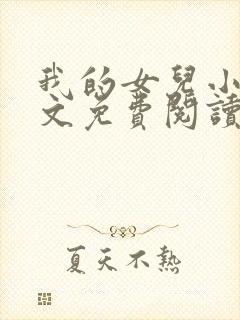 我的女兒小
文免費閱讀
夏天不熱